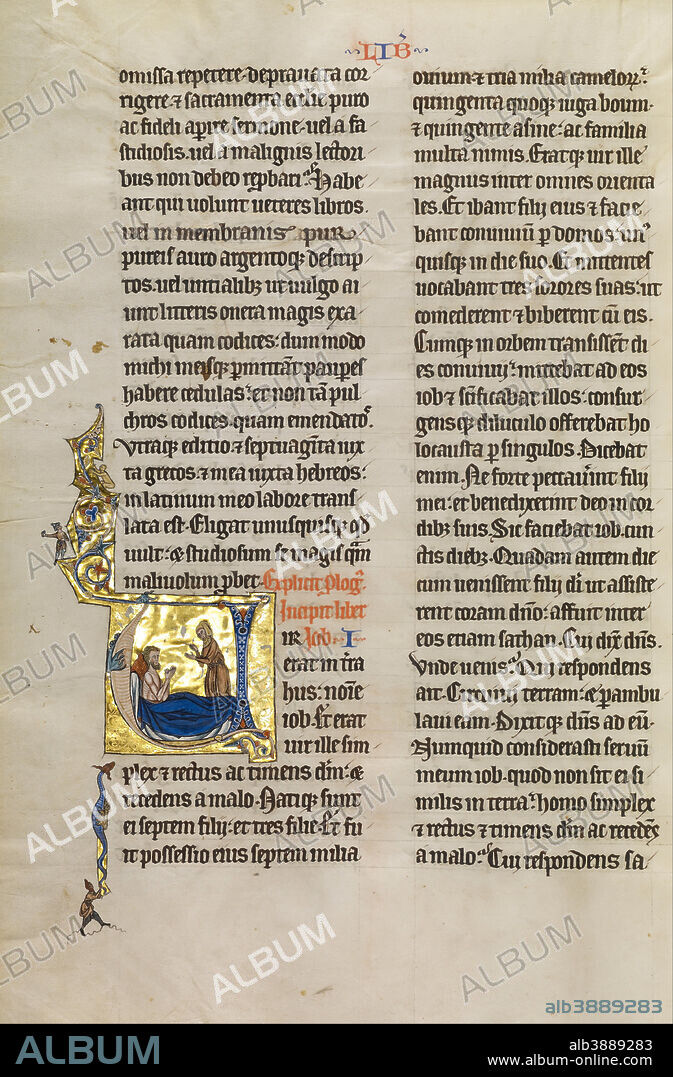 LIB
omissa repetere. depravata cor
rigere ⁊ sacramenta ecclie puro
ac fideli aperire sermone. uel a fa
stidiosis. uel a malignis lectori
bus non debeo reprbari. Habe
ant qui uolunt ueteres libros.
uel in membranis pur
pureis auro argentoqꝫ descrip
tos. uel untialibꝫ ut uulgo ai
unt litteris onera magis exa
rata quam codices: dum modo
michi meisqꝫ pmittāt paupes
habere cedulas: et non tā pul
chros codices quam emendatoꝭ.
Vtraqꝫ editio ⁊ septuagīta iux
ta grecos. ⁊ mea iuxta hebreos:
in latinum meo labore trans
lata est. Eligat unusquisqꝫ qd
uult: ⁊ studiosum se magis qm
maliuolum pbet. Explicit plogꝰ.
Incipit liber
Iob. I
UIR
erat in tra
hus: noīe
iob. Et erat
uir ille sim
plex ⁊ rectus ac timens dm: ⁊
recedens a malo. Natiqꝫ sunt
ei septem filij: et tres filie. Et fu
it possessio eius septem milia
ouium. ⁊ tria milia cameloꝝ.
quingenta quoqꝫ iuga boum.
⁊ quingente asine: ac familia
multa nimis. Eratqꝫ uir ille
magnus inter omnes orienta
les. Et ibant filij eius ⁊ facie
bant conuiuiū p domos: unꝰ
quisqꝫ in die suo. Et mittentes
uocabant tres sorores suas: ut
comederent ⁊ biberent cū eis.
Cumqꝫ in orbem transissēt di
es conuiuij: mittebat ad eos
iob ⁊ scificabat illos: consur
gensqꝫ diluculo offerebat ho
locausta p singulos. Dicebat
enim. Ne forte peccauīnt filij
mei: et benedixerint deo in cor
dibꝫ suis. Sic faciebat iob. cun
ctis diebꝫ. Quadam autem die
cum uenissent filij di ut assiste
rent coram dno: affuit inter
eos etiam sathan. Cui dix dns.
Vnde uenis. Qui respondens
ait. Circuiui terram: ⁊ pambu
laui eam. Dixitqꝫ dns ad eū.
Numquid considerasti seruū
meum iob. quod non sit ei si
milis in terra: homo simplex
⁊ rectus ⁊ timens dm ac recedēs
a malo. Cui respondens sa
ALBUM
alb3889283
ALBUM
alb3889283
www.album-online.com